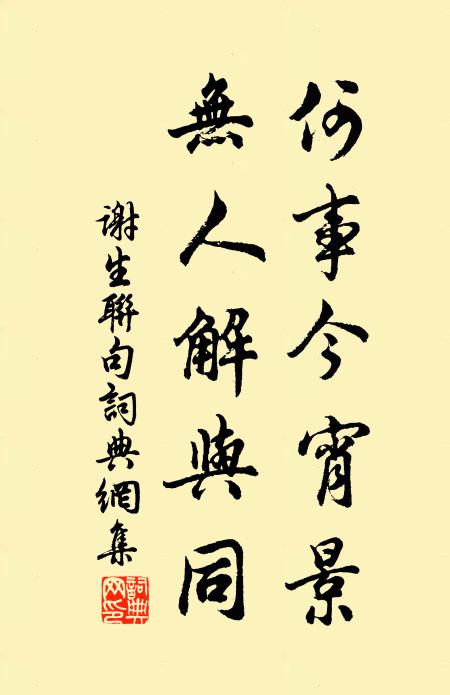 何事今宵景
無人解與同
謝生聯句詞典網集